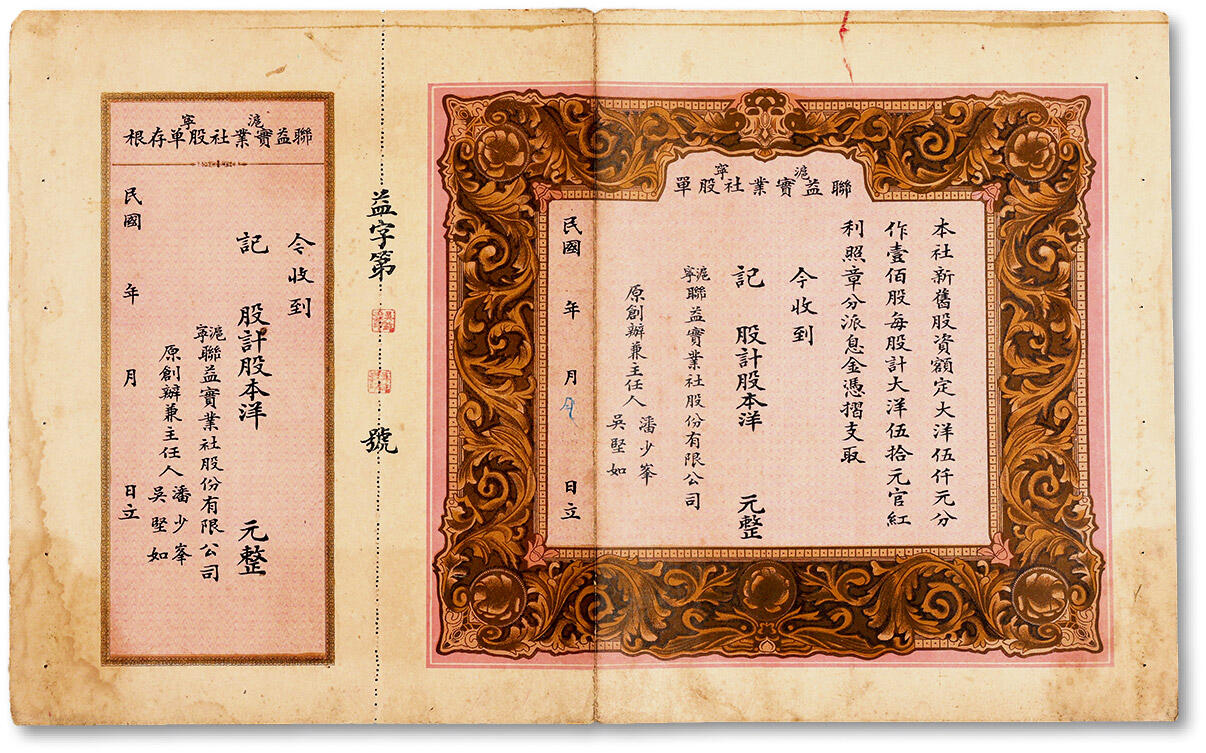 滬 寧
聯益實業社股單
本社新舊股資額定大洋伍仟元分
作壹佰股每股計大洋伍拾元官紅
利照章分派息金憑摺支取
今收到
記 股計股本洋 元整
滬寧聯益實業社股份有限公司
原創辦兼主任人 潘少峯
吳堅如
民國 年 月 日立
益字第 號
滬 寧
聯益實業社股單存根
今收到
記 股計股本洋 元整
滬寧聯益實業社股份有限公司
原創辦兼主任人 潘少峯
吳堅如
民國 年 月 日立